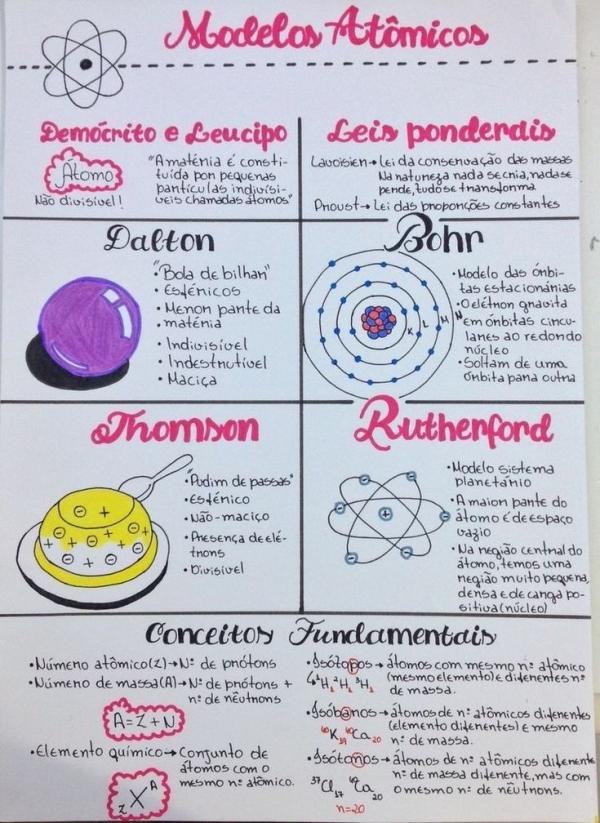 Modelos Atômicos
Demócrito e Leucipo
Átomo
Não divisível!
"A matéria é consti-
tuída por pequenas
partículas indivisí-
veis chamadas átomos"
Leis ponderais
Lavoisier → Lei da conservação das massas
Na natureza nada se cria, nada se
perde, tudo se transforma
Proust → Lei das proporções constantes
Dalton
• "Bola de bilhar"
• Esféricos
• Menor parte da
matéria
• Indivisível
• Indestrutível
• Maciça
Bohr
K L M N
• Modelo das órbi-
tas estacionárias
• O elétron gravita
em órbitas circu-
lares ao redor do
núcleo
• Saltam de uma
órbita para outra
Thomson
• "Pudim de passas"
• Esférico
• Não-maciço
• Presença de elé-
trons
• Divisível
Rutherford
• Modelo sistema
planetário
• A maior parte do
átomo é de espaço
vazio
• Na região central do
átomo, temos uma
região muito pequena,
densa e de carga po-
sitiva (núcleo)
Conceitos Fundamentais
• Número atômico (Z) → Nº de prótons
• Número de massa (A) → Nº de prótons +
nº de nêutrons
A = Z + N
• Elemento químico → Conjunto de
átomos com o
mesmo nº atômico.
Z X A
• Isótopos → átomos com mesmo nº atômico
(mesmo elemento) e diferentes nº
de massa.
¹H₁ ²H₁ ³H₁
• Isóbaros → átomos de nº atômicos diferentes
(elemento diferentes) e mesmo
nº de massa.
⁴⁰K₁₉ ⁴⁰Ca₂₀
• Isótonos → átomos de nº atômicos diferente
nº de massa diferente, mas com
o mesmo nº de nêutrons.
³⁷Cl₁₇ Ca₂₀
n=20